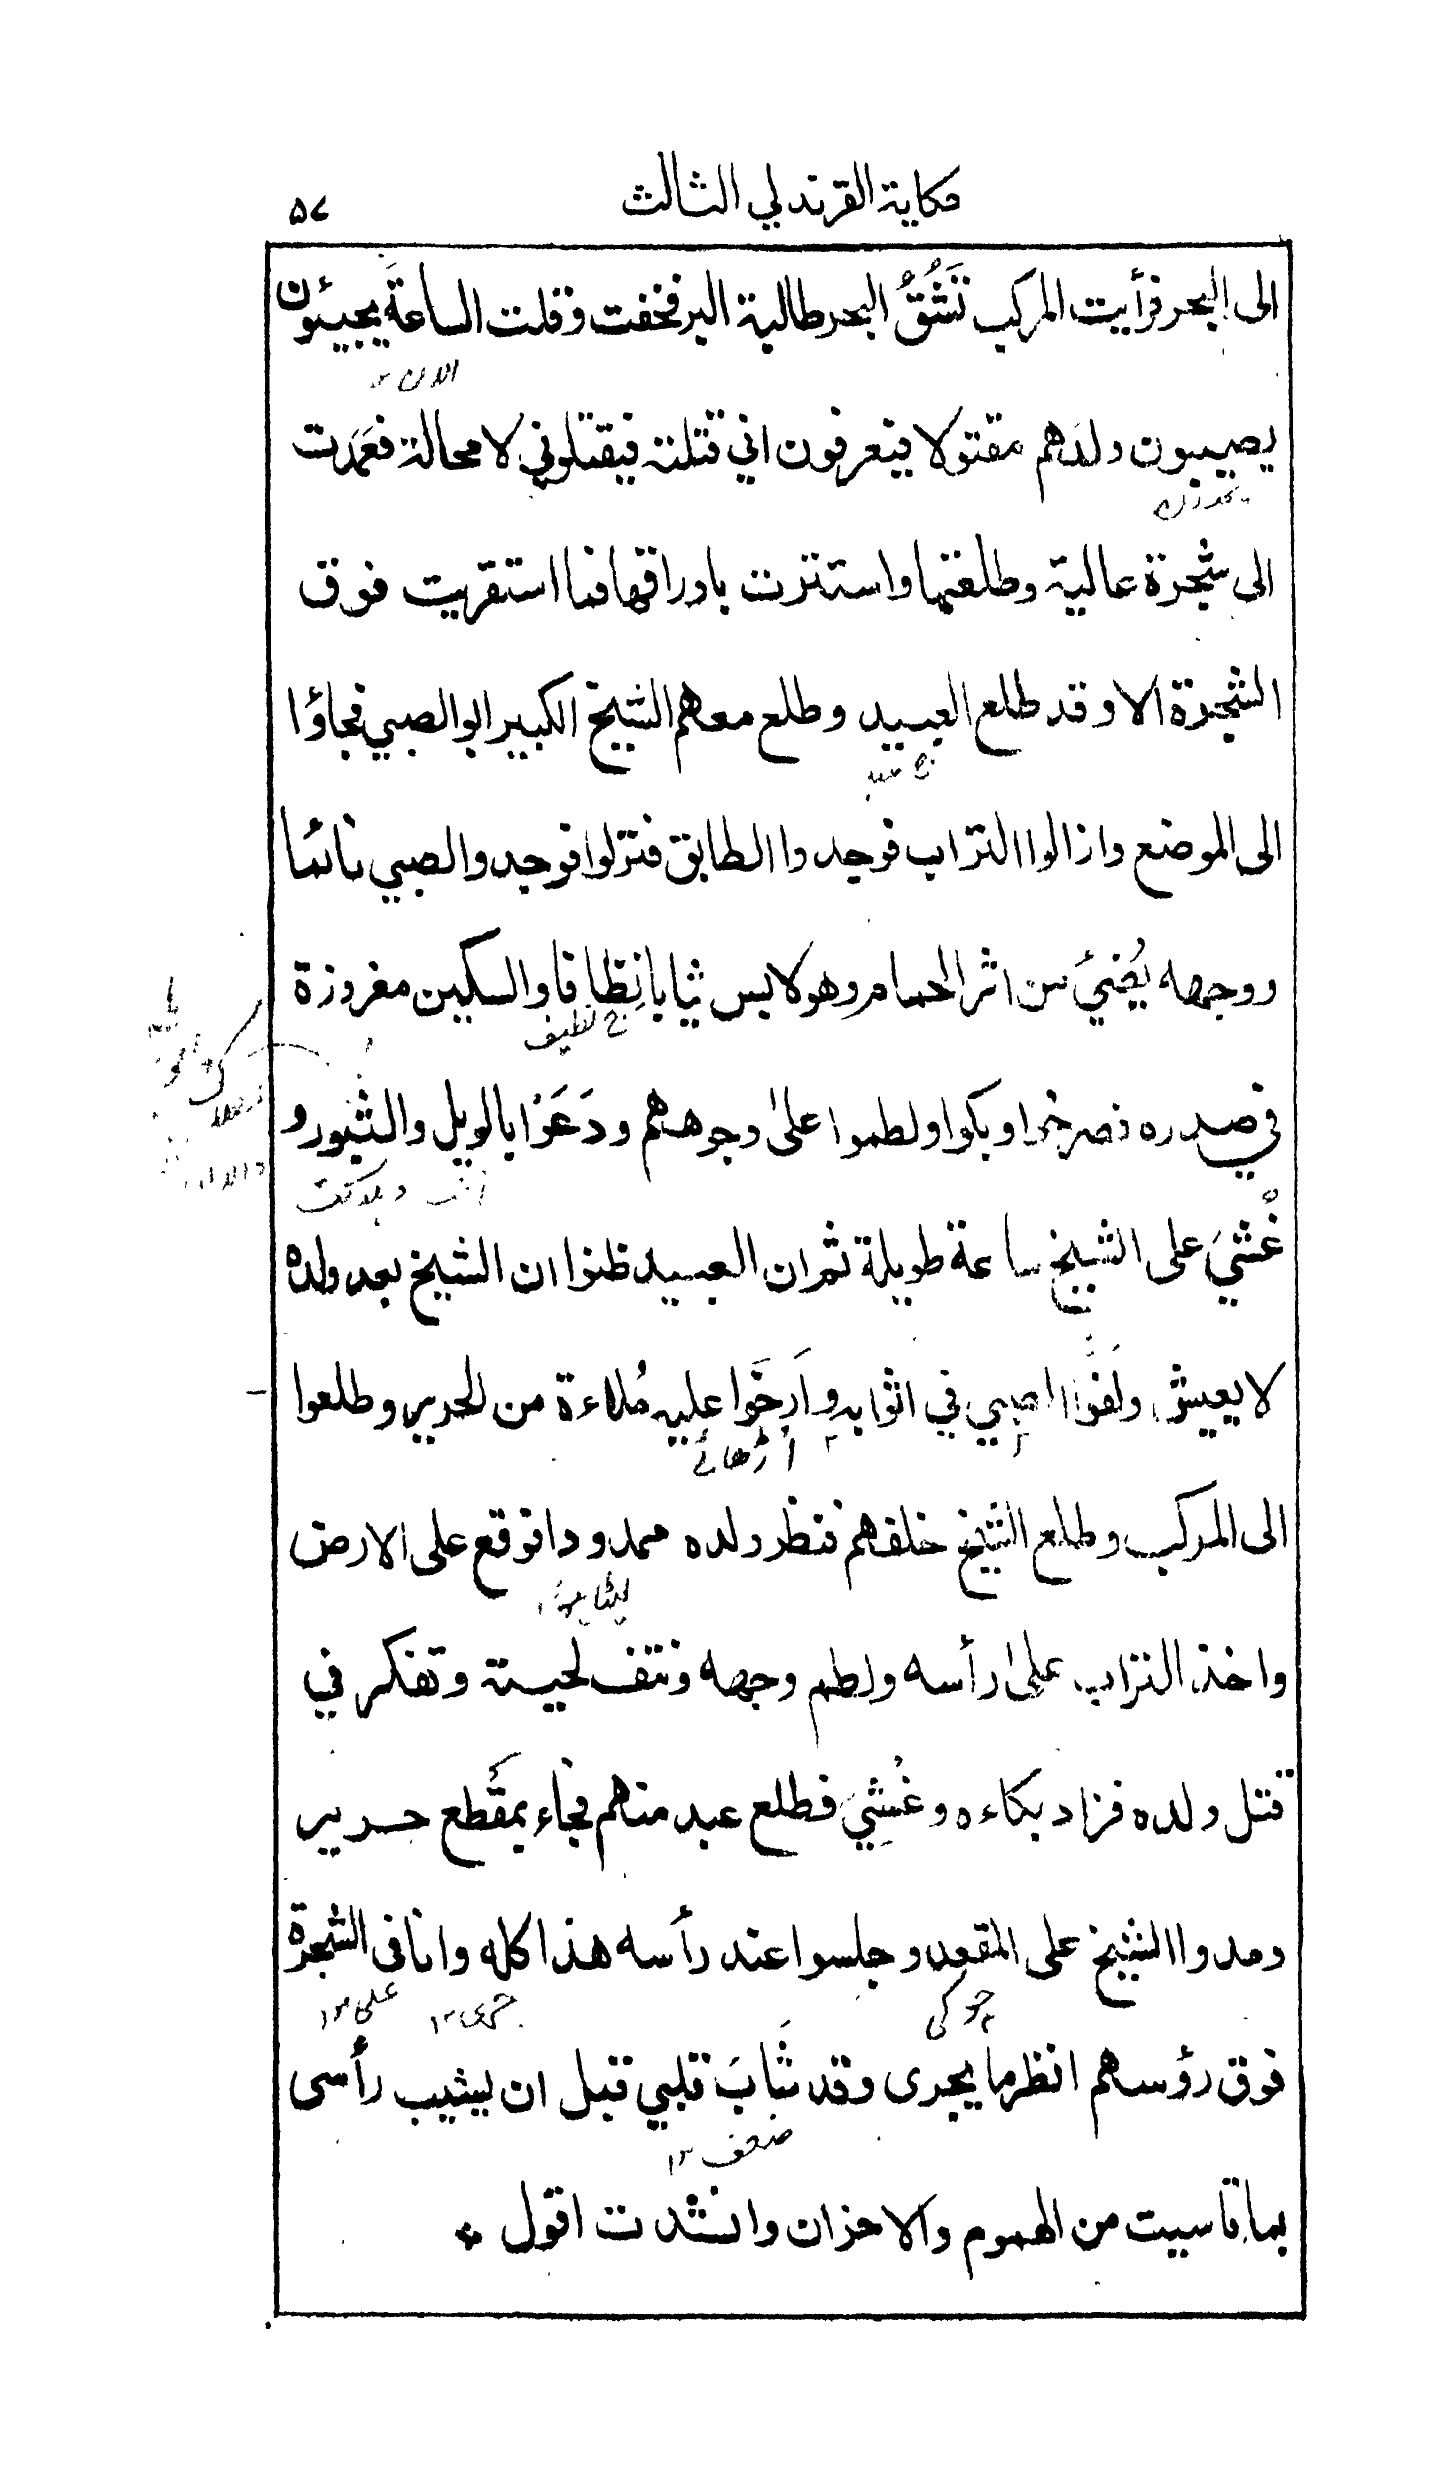 حكاية القرندلي الثالث ۵۷
الى البحر فرأيت المركب تَشُقُّ البحر طالبة البر فخفت وقلت الساعةَ يجيئون
يصيبون ولدهم مقتولا فيعرفون اني قتلته فيقتلوني لا محالة فعَمَدت
الى شجرة عالية وطلعتها واستترت باوراقها فما استقريت فوق
الشجرة الا وقد طلع العبيد وطلع معهم الشيخ الكبير ابو الصبي فجاؤا
الى الموضع وازالوا التراب فوجدوا الطابق فنزلوا فوجدوا الصبي نائما
ووجهه يُضيئ من اثر الحمام وهو لابس ثيابا نِظافا والسكين مغروزة
نظيف
في صدره فصرخوا وبكوا ولطموا على وجوههم ودَعَوْا بالويل والثبور و
غُشيَ على الشيخ ساعة طويلة ثم ان العبيد ظنوا ان الشيخ بعد ولده
لا يعيش ولَفّوا الصبي في اثوابه وارخَوا عليه مُلاءة من الحرير وطلعوا
الى المركب وطلع الشيخ خلفهم فنظر ولده ممدودا فوقع على الارض
واخذ التراب على رأسه ولطم وجهه ونتف لحيته وتفكر في
قتل ولده فزاد بكاءه وغُشِيَ فطلع عبد منهم فجاء بمقَطع حرير
ومدوا الشيخ على المقعد وجلسوا عند رأسه هذا كله وانا فى الشجرة
چوکی
على ١٢
فوق رؤسهم انظر ما يجرى وقد شَابَ قلبي قبل ان يشيب رأسى
ضعف ١٢
بما قاسيت من الهموم والاحزان وانشدت اقول *